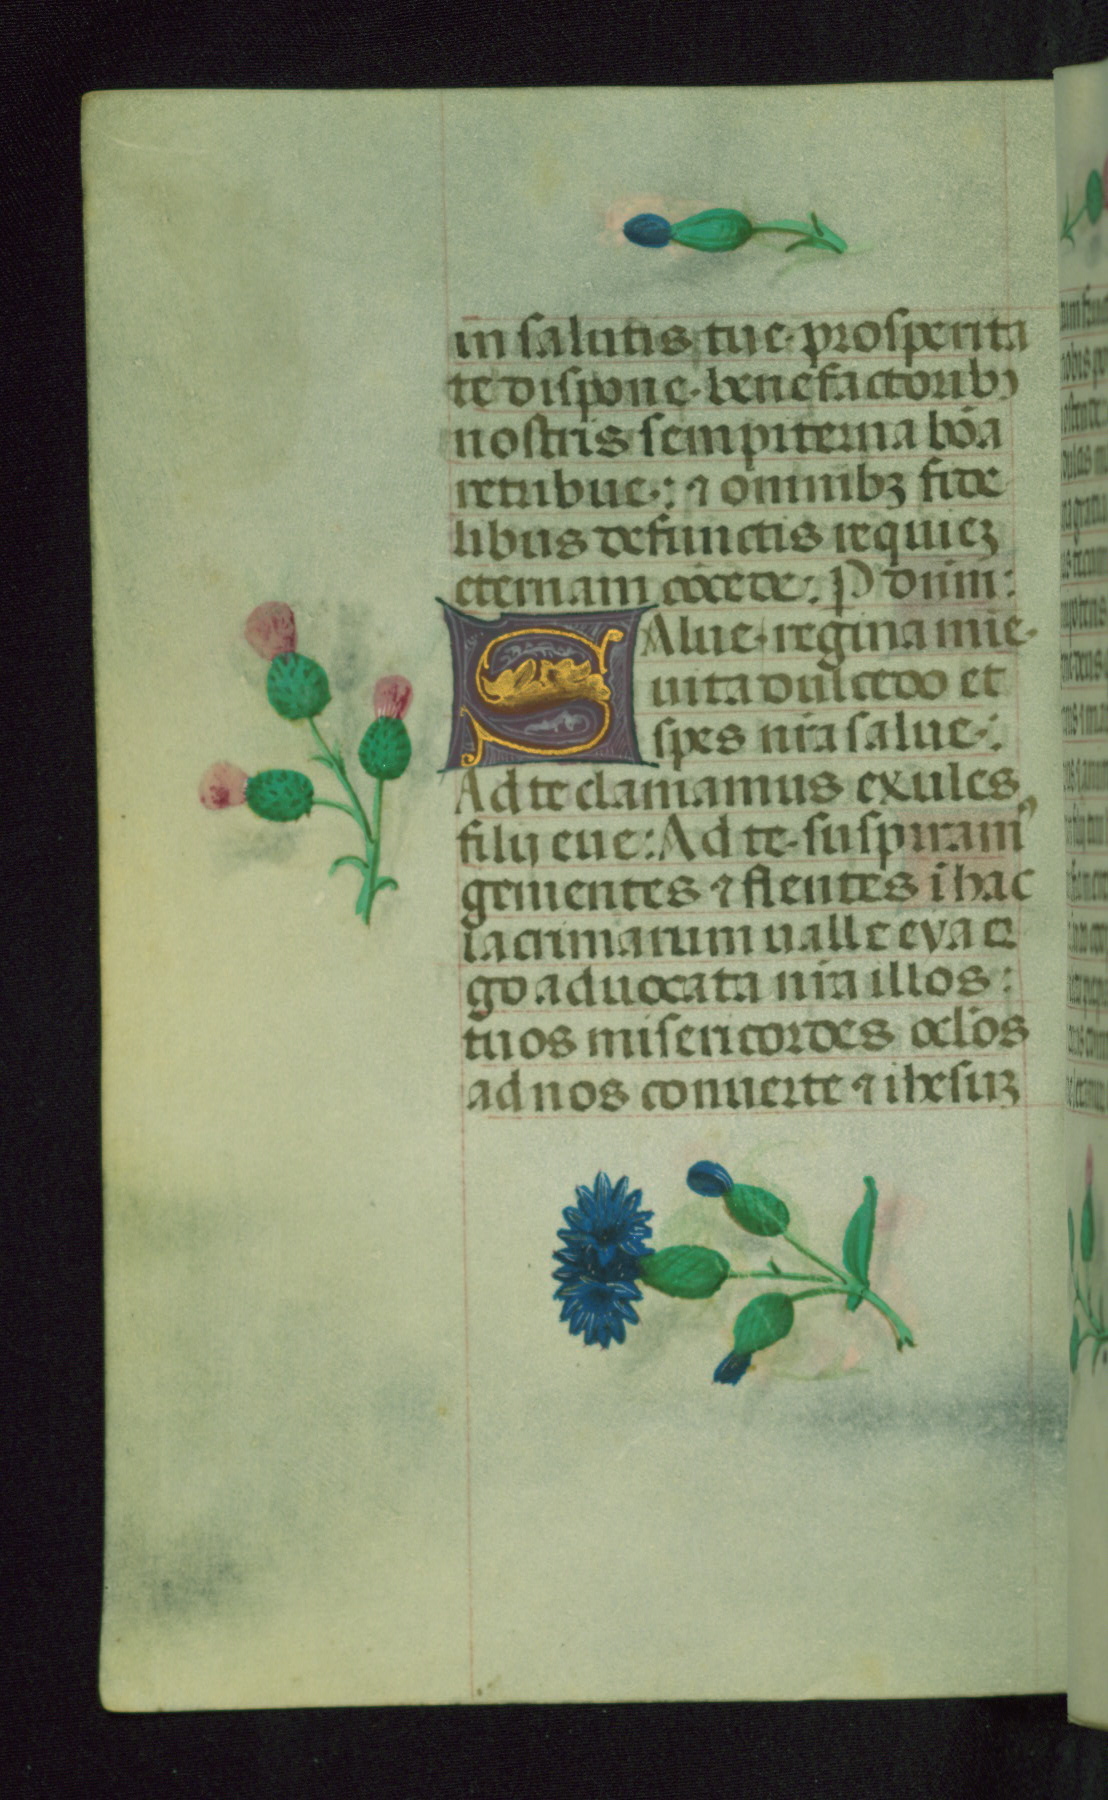 in salutis tue· prosperita
te dispone· benefactoribꝫ
nostris sempiterna bōa
retribue·: ⁊ omnibꝫ fide
libus defunctis requieꝫ
eternam cōcede·: P dn̄m:
SAlue· regina mie·
uita dulcedo et
spes nr̄a salue·:
Ad te clamamus exules
filij eue: Ad te· suspiram᾿
gementes ⁊ flentes ī hac
lacrimarum ualle eya er
go aduocata nr̄a illos:
tuos misericordes oclōs
ad nos conuerte ⁊ ihesuꝫ